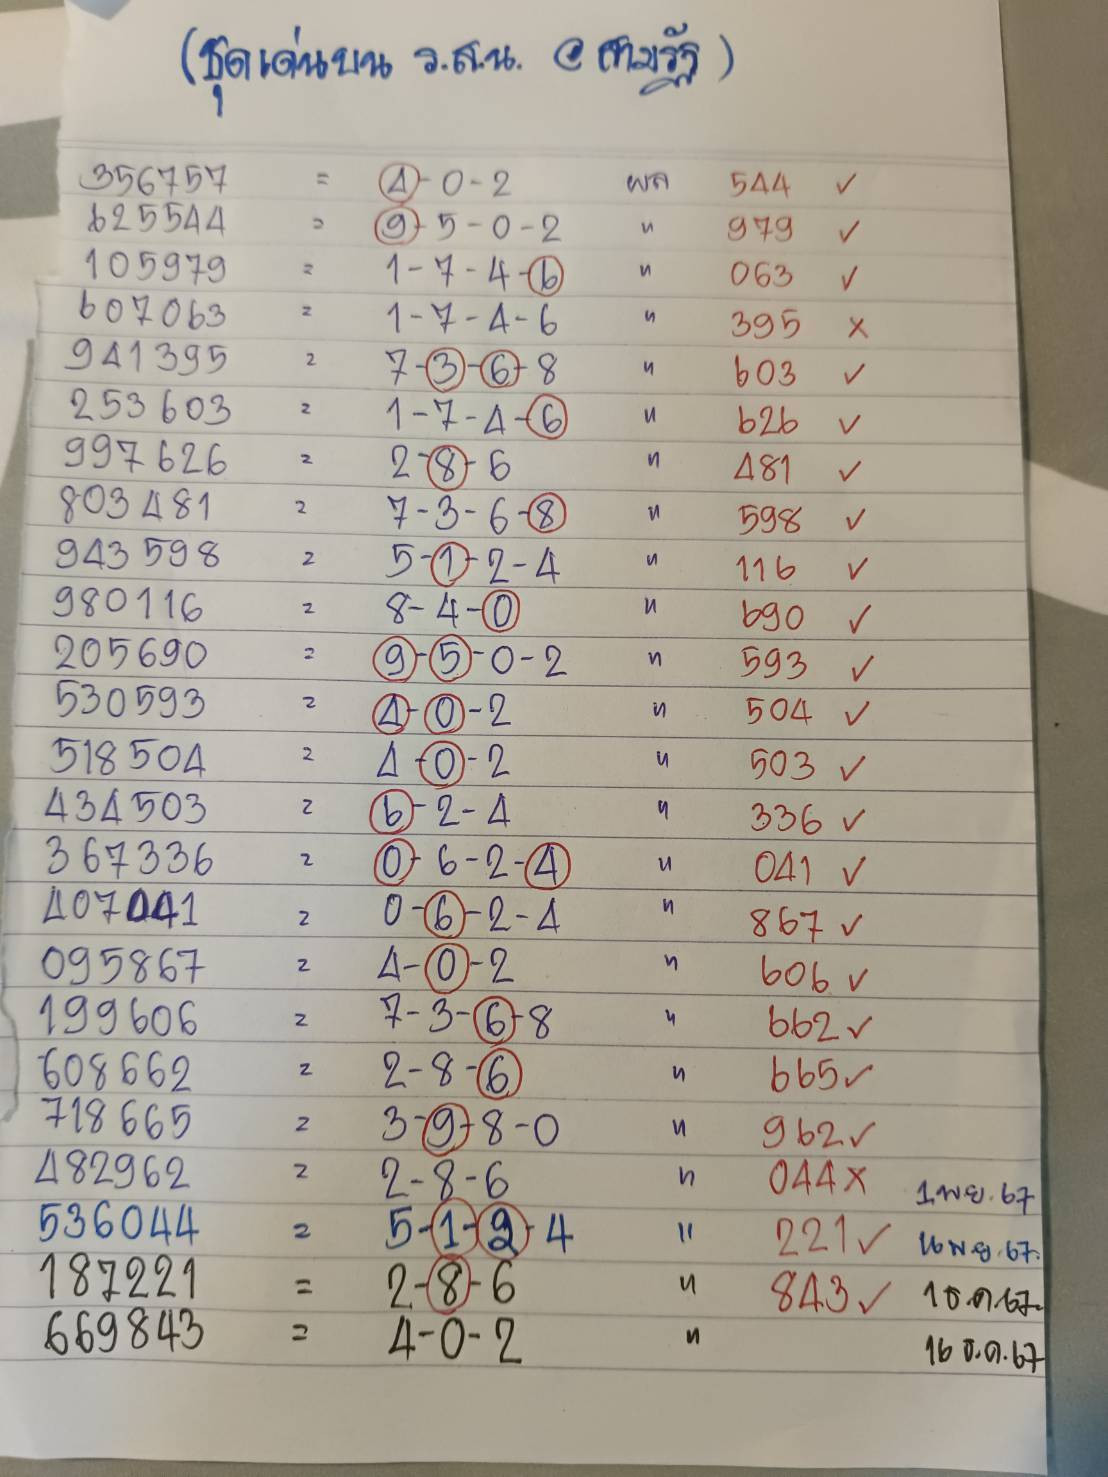 (ชุดเด่นบน ว.ส.น. @ สามรัฐ)
356757 = 4-0-2 ผล 544 ✓
625544 = 9-5-0-2 " 979 ✓
105979 = 1-7-4-6 " 063 ✓
607063 = 1-7-4-6 " 395 ×
941395 = 7-3-6-8 " 603 ✓
253603 = 1-7-4-6 " 626 ✓
997626 = 2-8-6 " 481 ✓
803481 = 7-3-6-8 " 598 ✓
943598 = 5-1-2-4 " 116 ✓
980116 = 8-4-0 " 690 ✓
205690 = 9-5-0-2 " 593 ✓
530593 = 4-0-2 " 504 ✓
518504 = 4-0-2 " 503 ✓
434503 = 6-2-4 " 336 ✓
367336 = 0-6-2-4 " 041 ✓
407041 = 0-6-2-4 " 867 ✓
095867 = 4-0-2 " 606 ✓
199606 = 7-3-6-8 " 662 ✓
608662 = 2-8-6 " 665 ✓
718665 = 3-9-8-0 " 962 ✓
482962 = 2-8-6 " 044 × 1 พย. 67
536044 = 5-1-2-4 " 221 ✓ 16 พ.ย. 67
187221 = 2-8-6 " 843 ✓ 1 ธ.ค. 67
669843 = 4-0-2 " 16 ธ.ค. 67